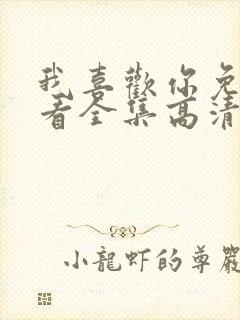 我喜歡你免
看全集高清
小龍虾的尊嚴